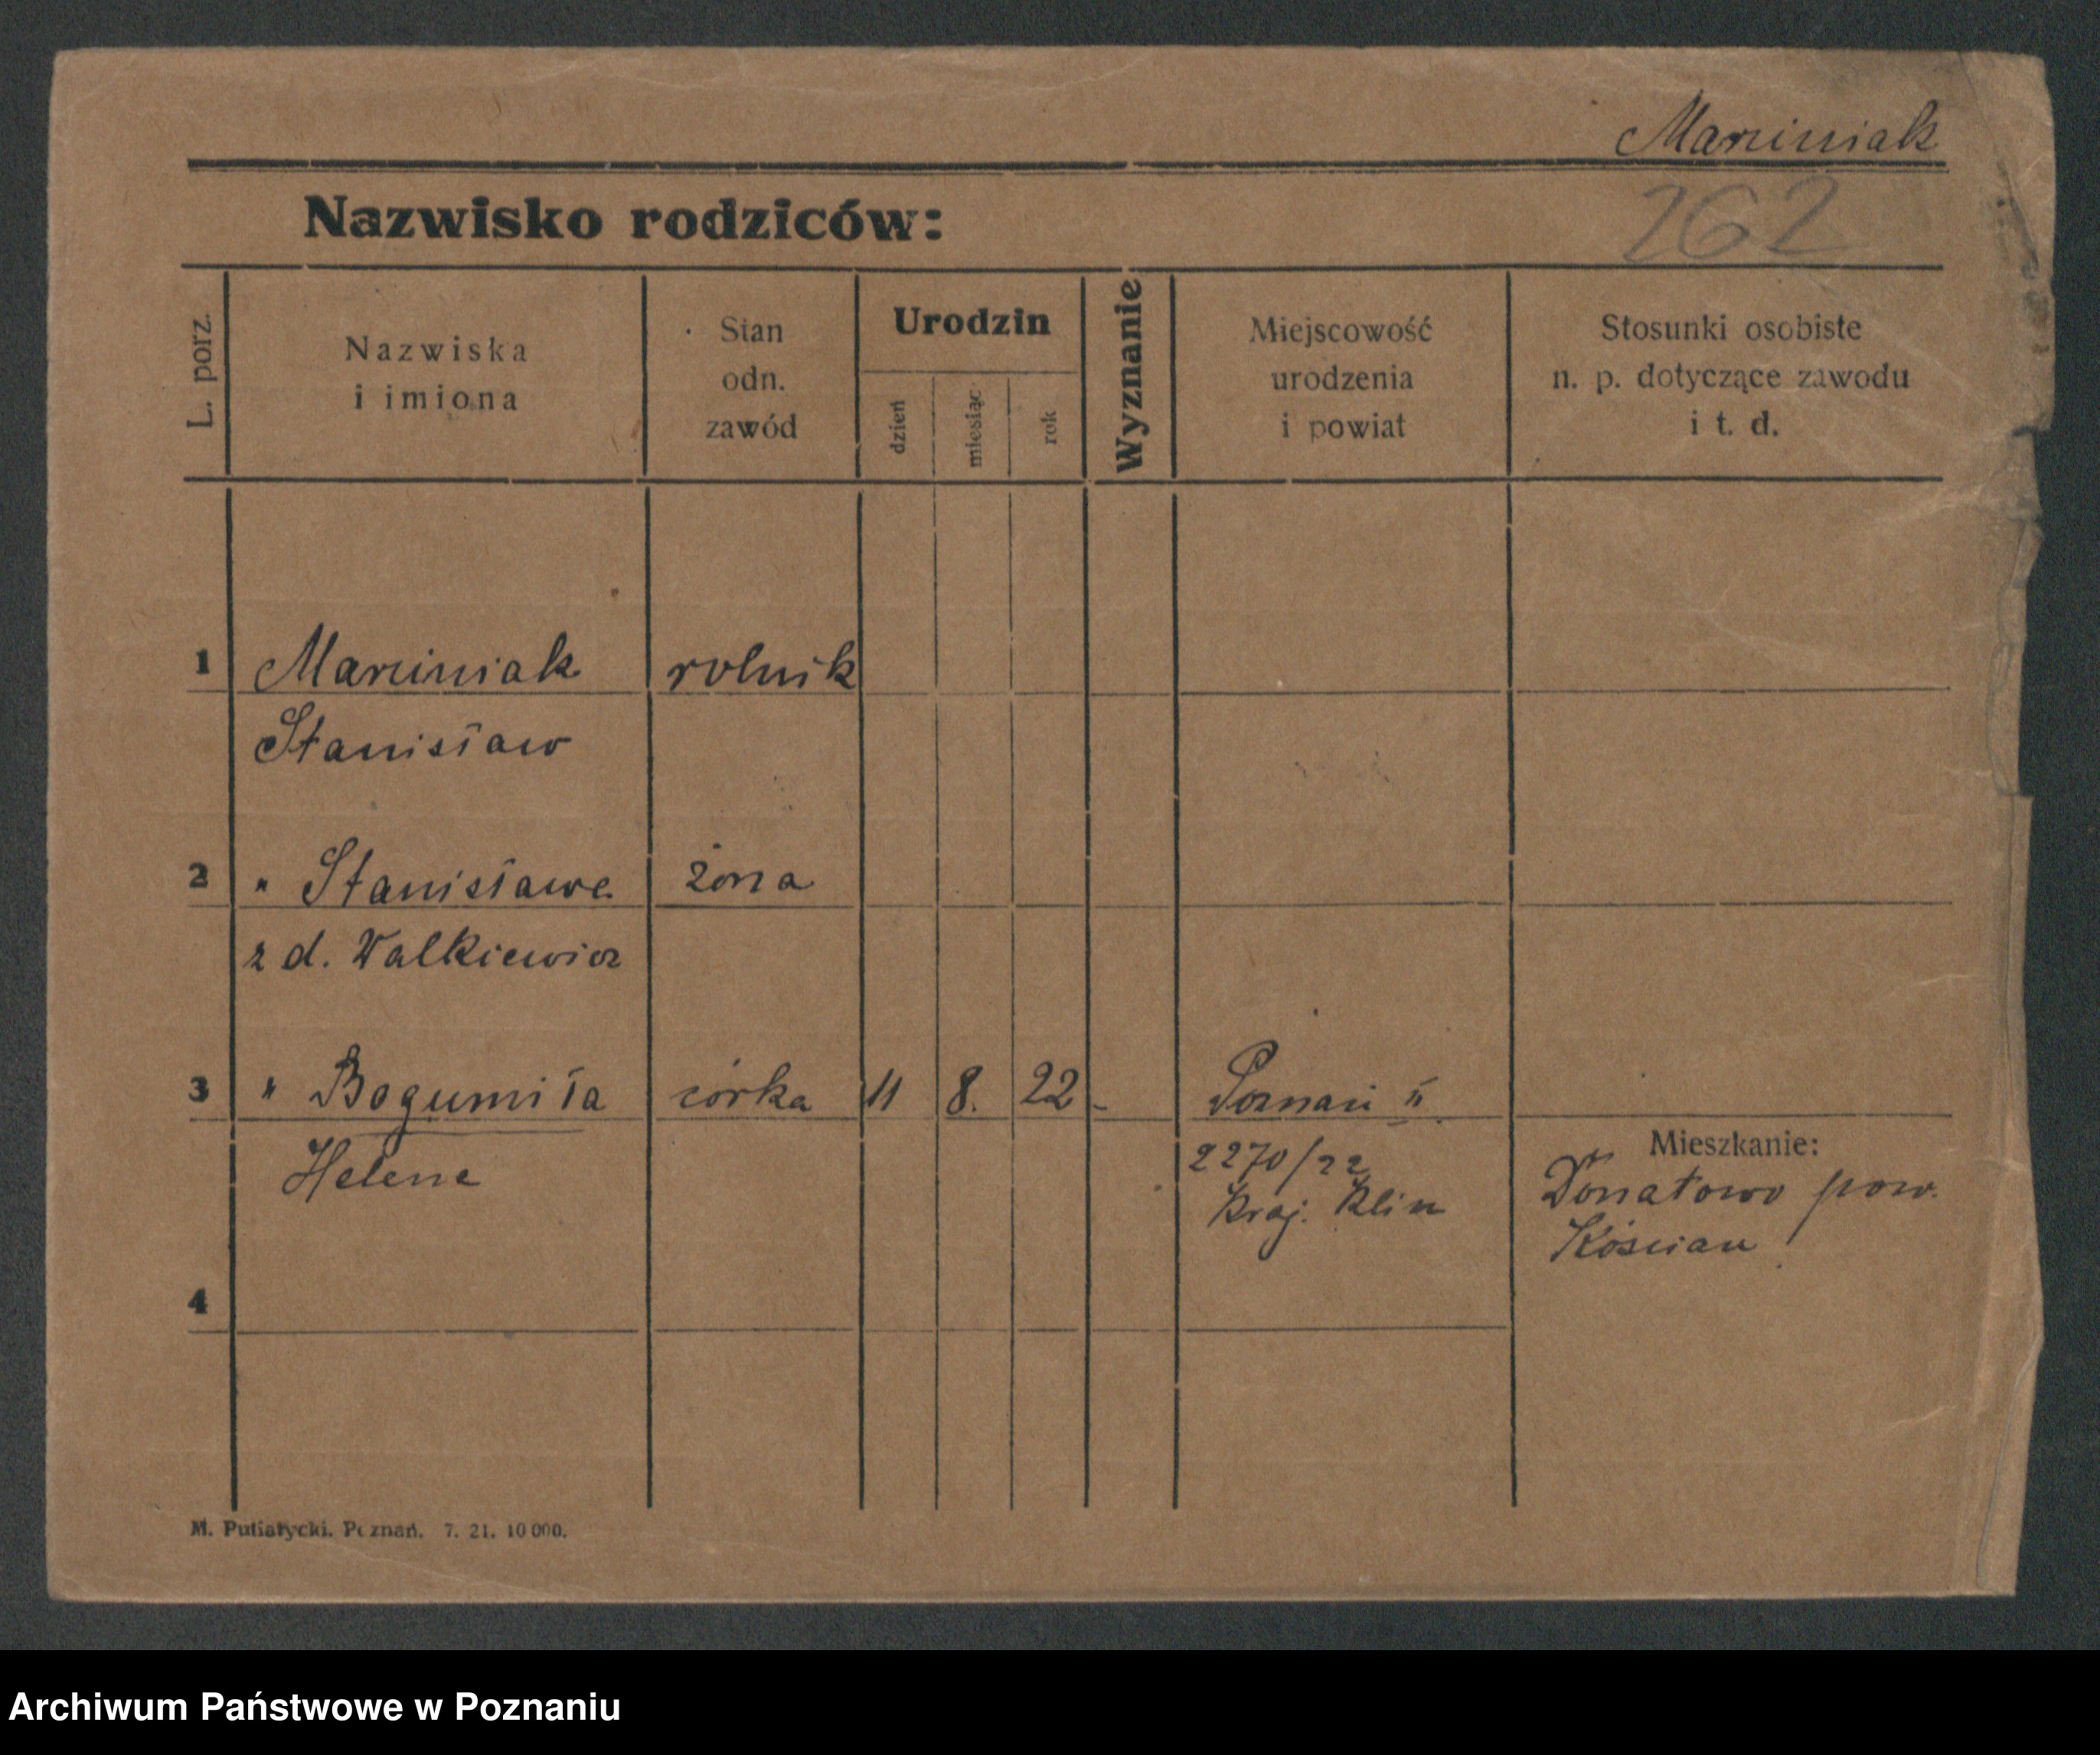 Marciniak
262
Nazwisko rodziców:
L. porz.
Nazwiska
i imiona
Stan
odn.
zawód
Urodzin
dzień
miesiąc
rok
Wyznanie
Miejscowość
urodzenia
i powiat
Stosunki osobiste
n. p. dotyczące zawodu
i t. d.
1 Marciniak rolnik
Stanisław
2 " Stanisława żona
z d. Walkiewicz
3 " Bogumiła córka 11 8. 22 - Poznań II
Mieszkanie:
Helena 2270/22 Donatowo pow.
Kraj. Klin Kościan
4
M. Putiatycki. Poznań. 7. 21. 10 000.
Archiwum Państwowe w Poznaniu